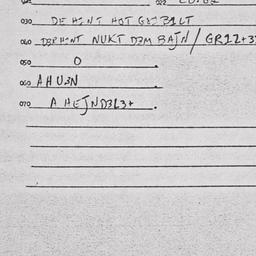 030 DE HINT HOT GEBILT
040 DER HINT NUKT D3M BAJN / GR12+3
050 O .
060 A HU3N
070 A HEJND3L3+ .